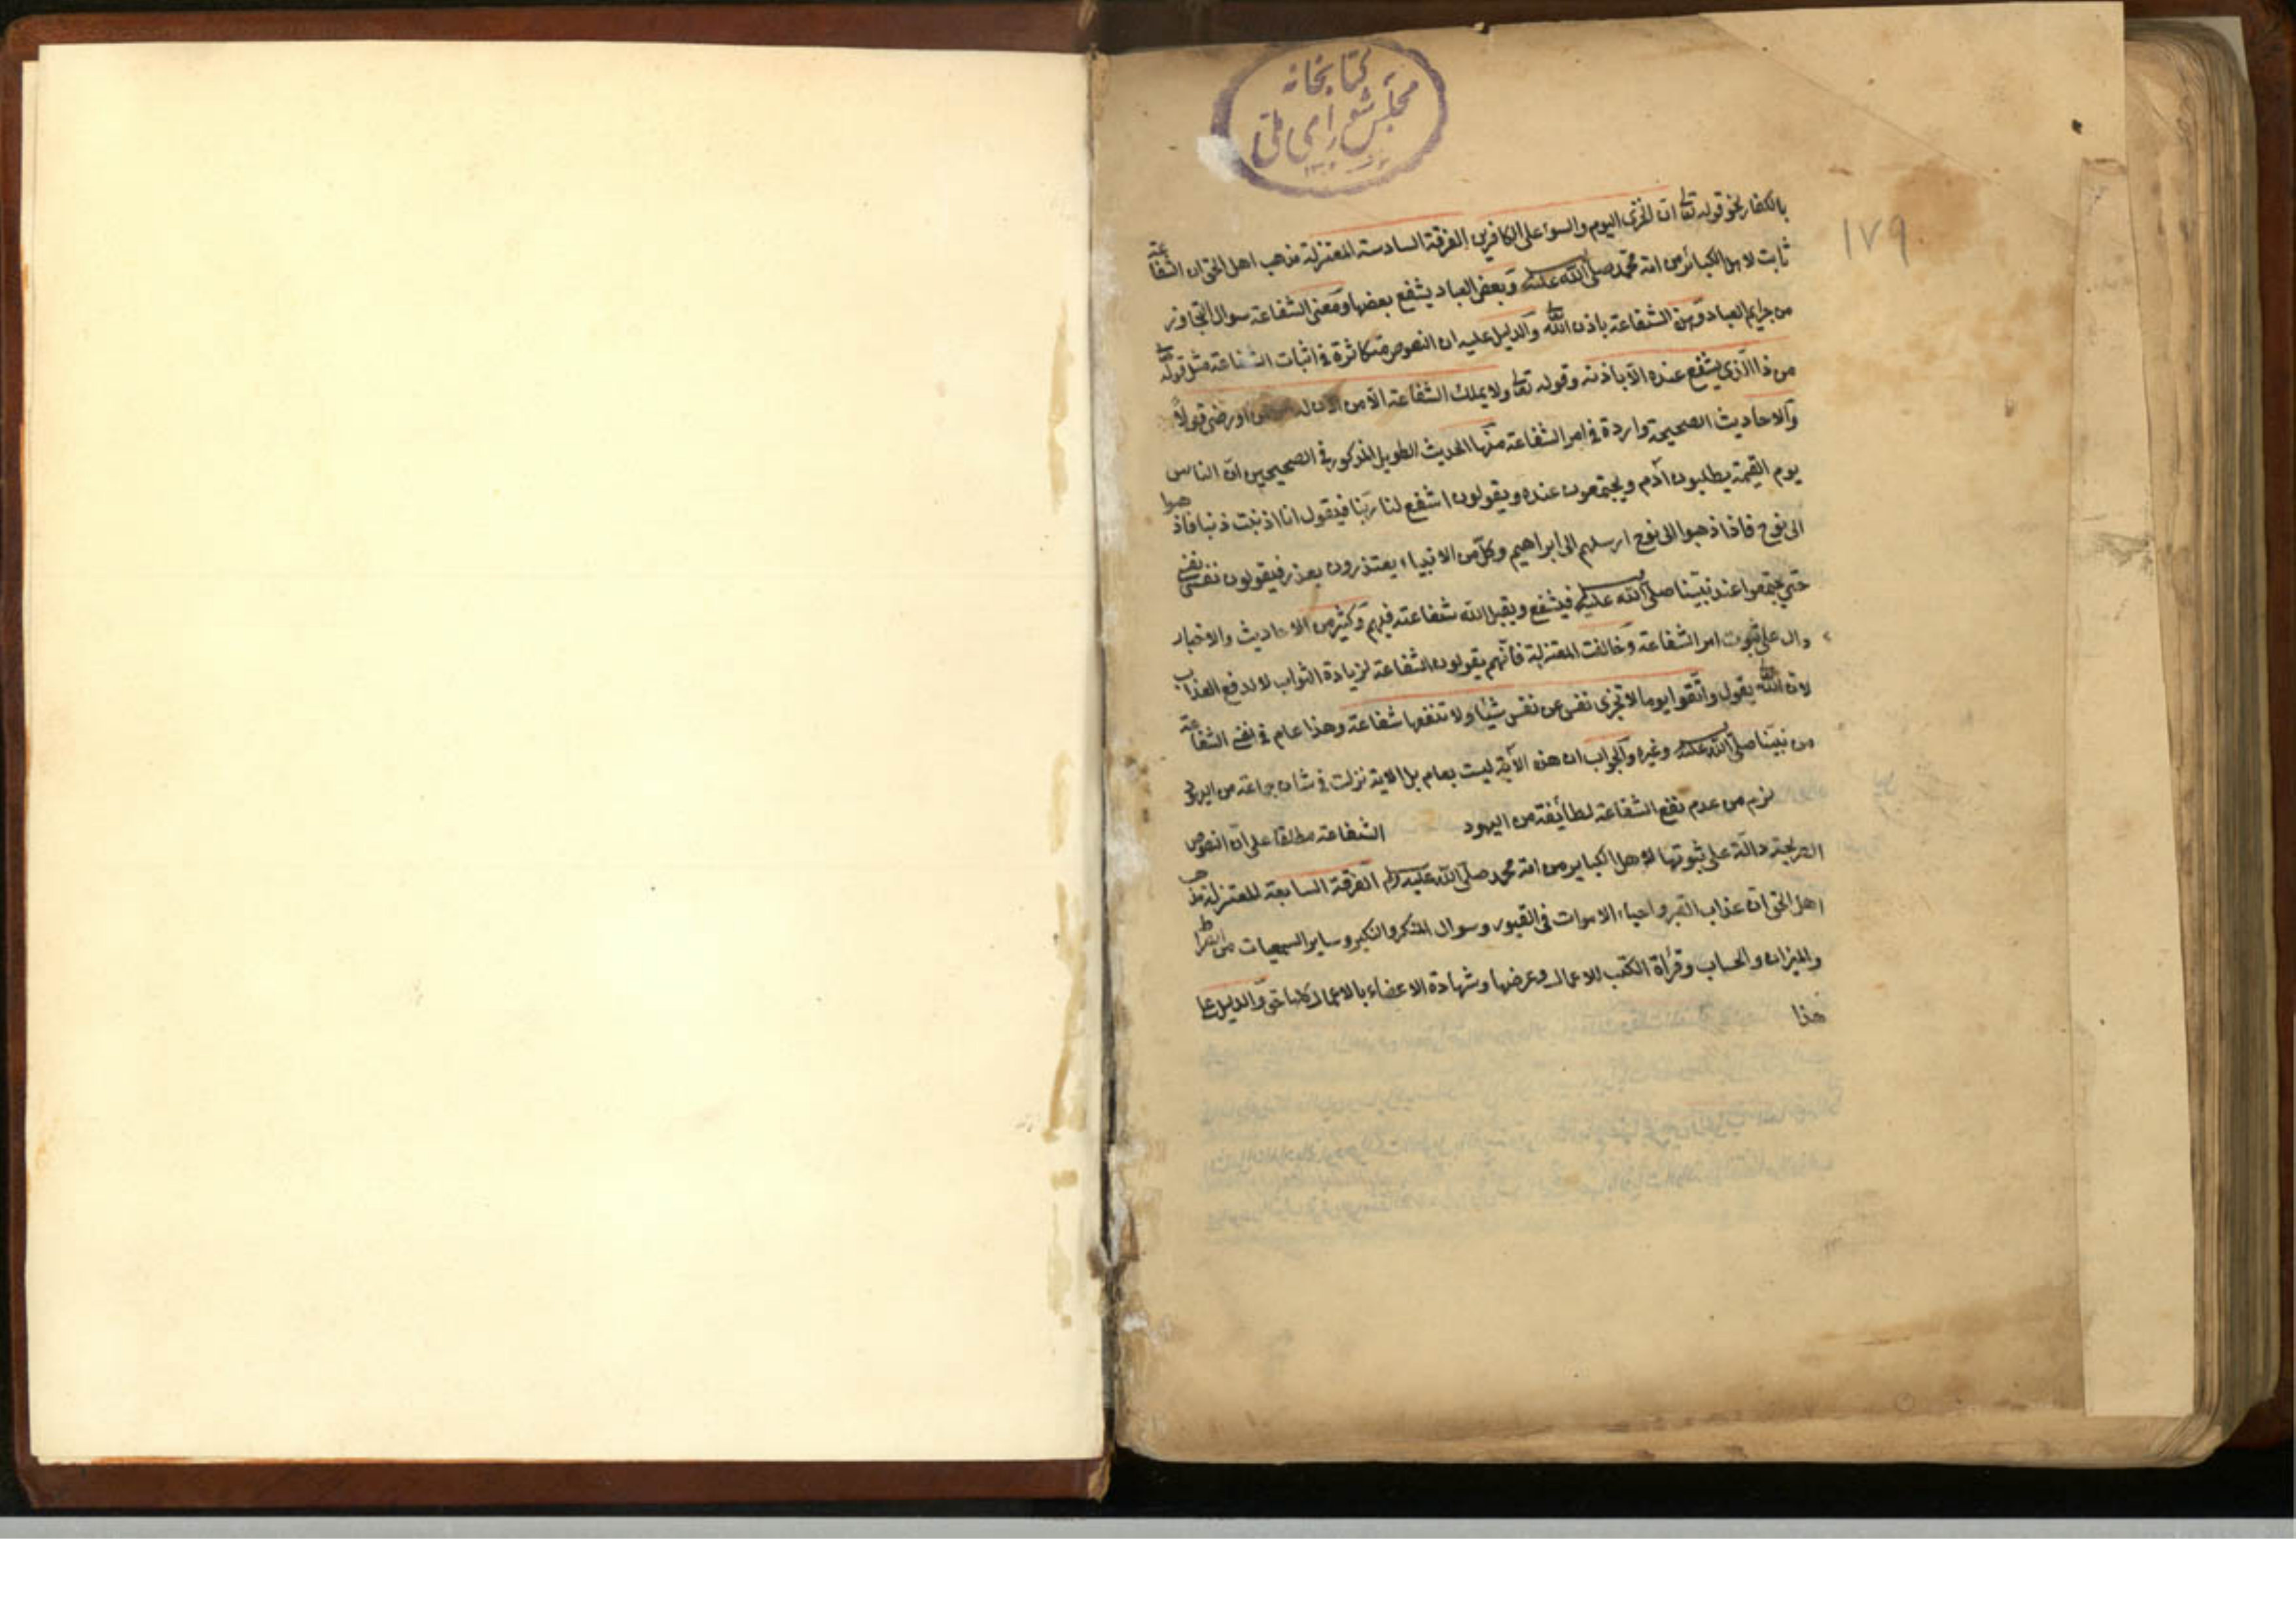 كتابخانه
مجلس شورای ملی
١٧٩
بالكفار نحو قوله تعا ان الخزى اليوم والسوء على الكافرين الفرقة السادسة المعتزلة مذهب اهل الحق ان الشفاعة
ثابت لاهل الكبائر من امة محمد صلى الله عليه وبعض العباد يشفع بعضها ومعنى الشفاعة سوال التجاوز
من جرايم العباد وهذه الشفاعة باذن الله والدليل عليه ان النصوص متكاثرة فى اثبات الشفاعة مثل قوله
من ذا الذى يشفع عنده الا باذنه وقوله تعا ولا يملك الشفاعة الا من اذن له ورضى قولاً
والاحاديث الصحيحة واردة فى امر الشفاعة منها الحديث الطويل المذكور فى الصحيحين ان الناس
يوم القيمة يطلبون آدم ويجتمعون عنده ويقولون اشفع لنا ربنا فيقول انا اذنبت ذنبا فاذهبوا
الى نوح فاذا ذهبوا الى نوح ارسلهم الى ابراهيم وكل من الانبياء يعتذرون بعذر فيقولون نفسى نفسى
حتى يجتمعوا عند نبينا صلى الله عليه فيشفع ويقبل الله شفاعته فيهم وكثير من الاحاديث والاخبار
دال على ثبوت امر الشفاعة وخالفت المعتزلة فانهم يقولون الشفاعة لزيادة الثواب لا لدفع العذاب
لان الله يقول واتقوا يوما لا تجزى نفس عن نفس شيئا ولا تنفعها شفاعة وهذا عام فى نفى الشفاعة
من نبينا صلى الله عليه وغيره والجواب ان هذه الآية ليست بعام بل الاية نزلت فى شان جماعة من اليهود
لزم من عدم نفع الشفاعة لطائفة من اليهود الشفاعة مطلقا على ان النصوص
الصريحة دالة على ثبوتها لاهل الكباير من امة محمد صلى الله عليه وسلم الفرقة السابعة المعتزلة مذهب
اهل الحق ان عذاب القبر واحياء الاموات فى القبور وسوال المنكر والنكير وساير السمعيات من الصراط
والميزان والحساب وقراة الكتب للاعمال وعرضها وشهادة الاعضاء بالاعمال كلها حق والدليل على
هذا